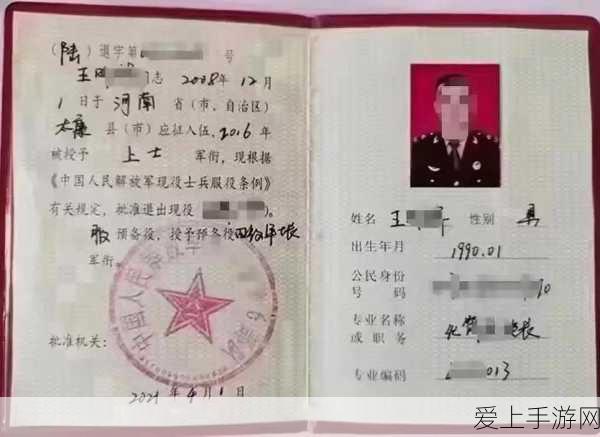 (陆) 退字第 号
王 同志 2008年12月
1日于 河南 省(市、自治区)
太康 县(市)应征入伍,2016年
被授予 上士 军衔,现根据
《中国人民解放军现役士兵服役条例》
有关规定,批准退出现役 )。
服 预备役,授予预备役四级军士长
军衔。
批准机关:
中国人民解放军
部队
2021年4月1日
姓名 王 性别 男
出生年月 1990.01
公民身份
号码 10
专业名称
或职务
专业编码 013
爱上手游网